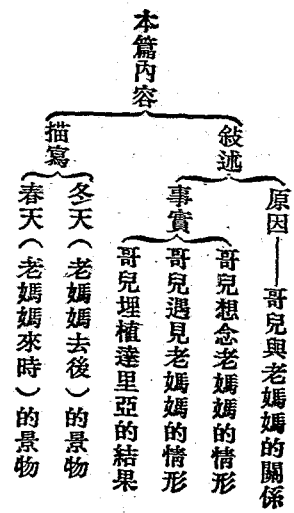 本篇內容
敍述
原因
哥兒與老媽媽的關係
事實
哥兒想念老媽媽的情形
哥兒遇見老媽媽的情形
哥兒埋植達里亞的結果
描寫
冬天(老媽媽去後)的景物
春天(老媽媽來時)的景物